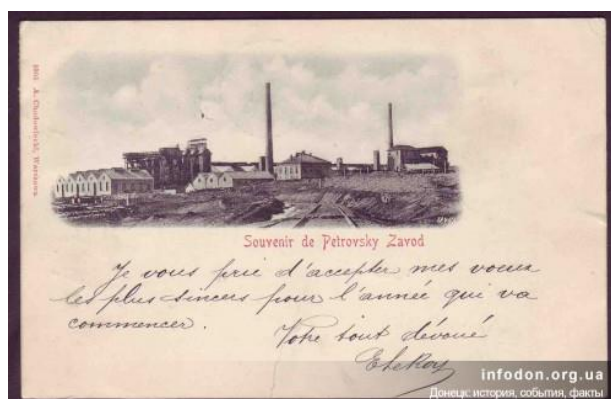 A. Chodowiecki, Warszawa
Souvenir de Petrovsky Zavod
Je vous prie d'accepter mes voeux
les plus sincers pour l'année qui va
commencer.
Votre tout dévoué
E Le Roy
infodon.org.ua
Донецк: история, события, факты